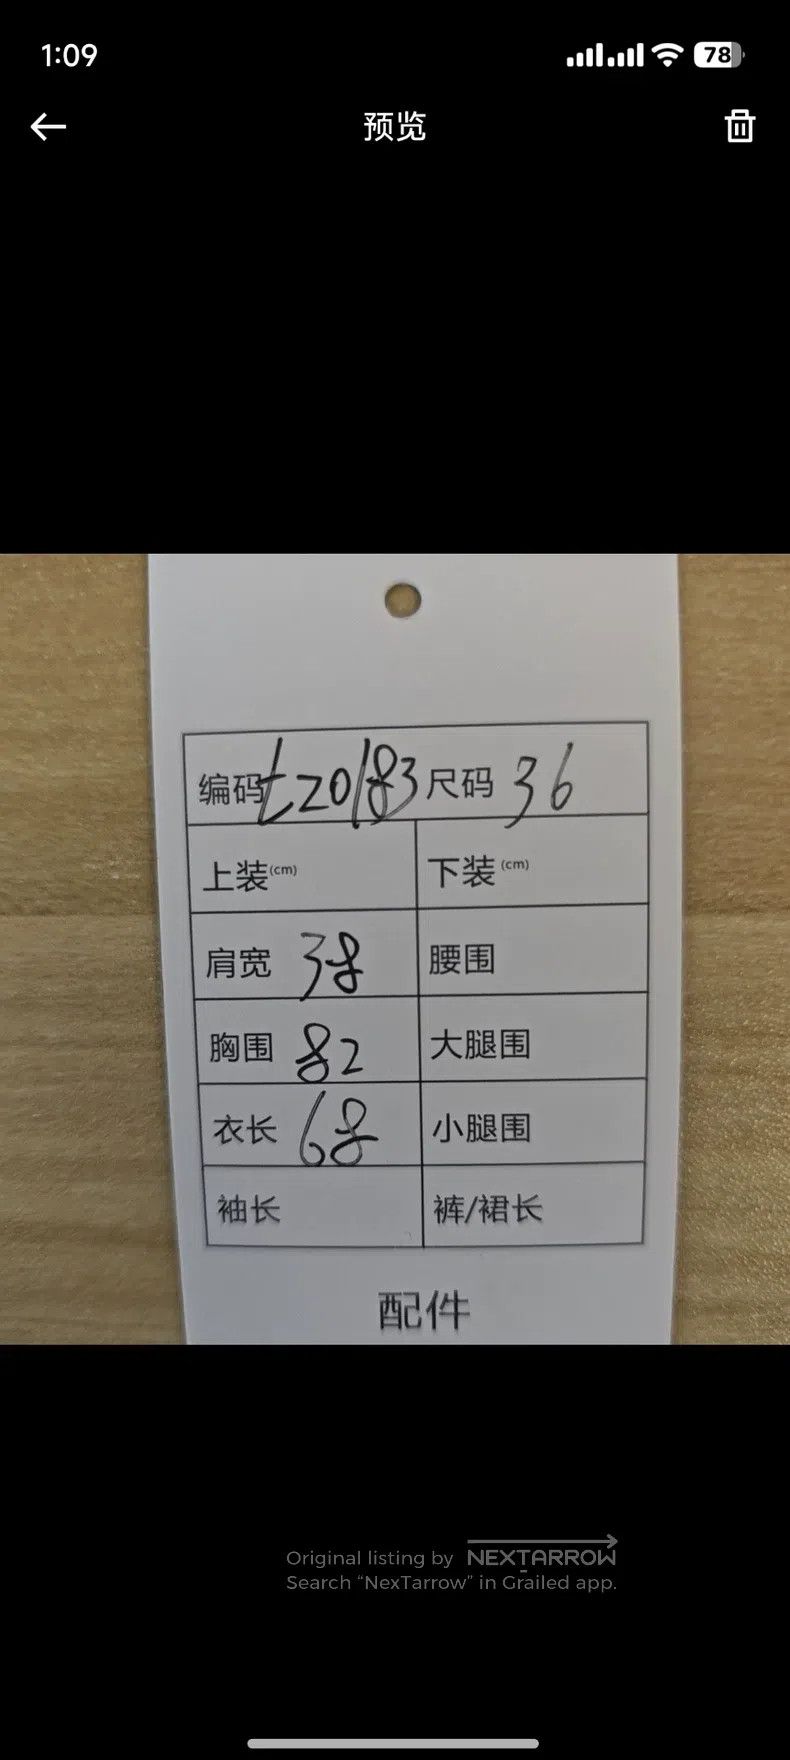 1:09 78
预览
编码 tz0183 尺码 36
上装(cm) 下装(cm)
肩宽 38 腰围
胸围 82 大腿围
衣长 68 小腿围
袖长 裤/裙长
配件
Original listing by NEXTARROW
Search “NexTarrow” in Grailed app.